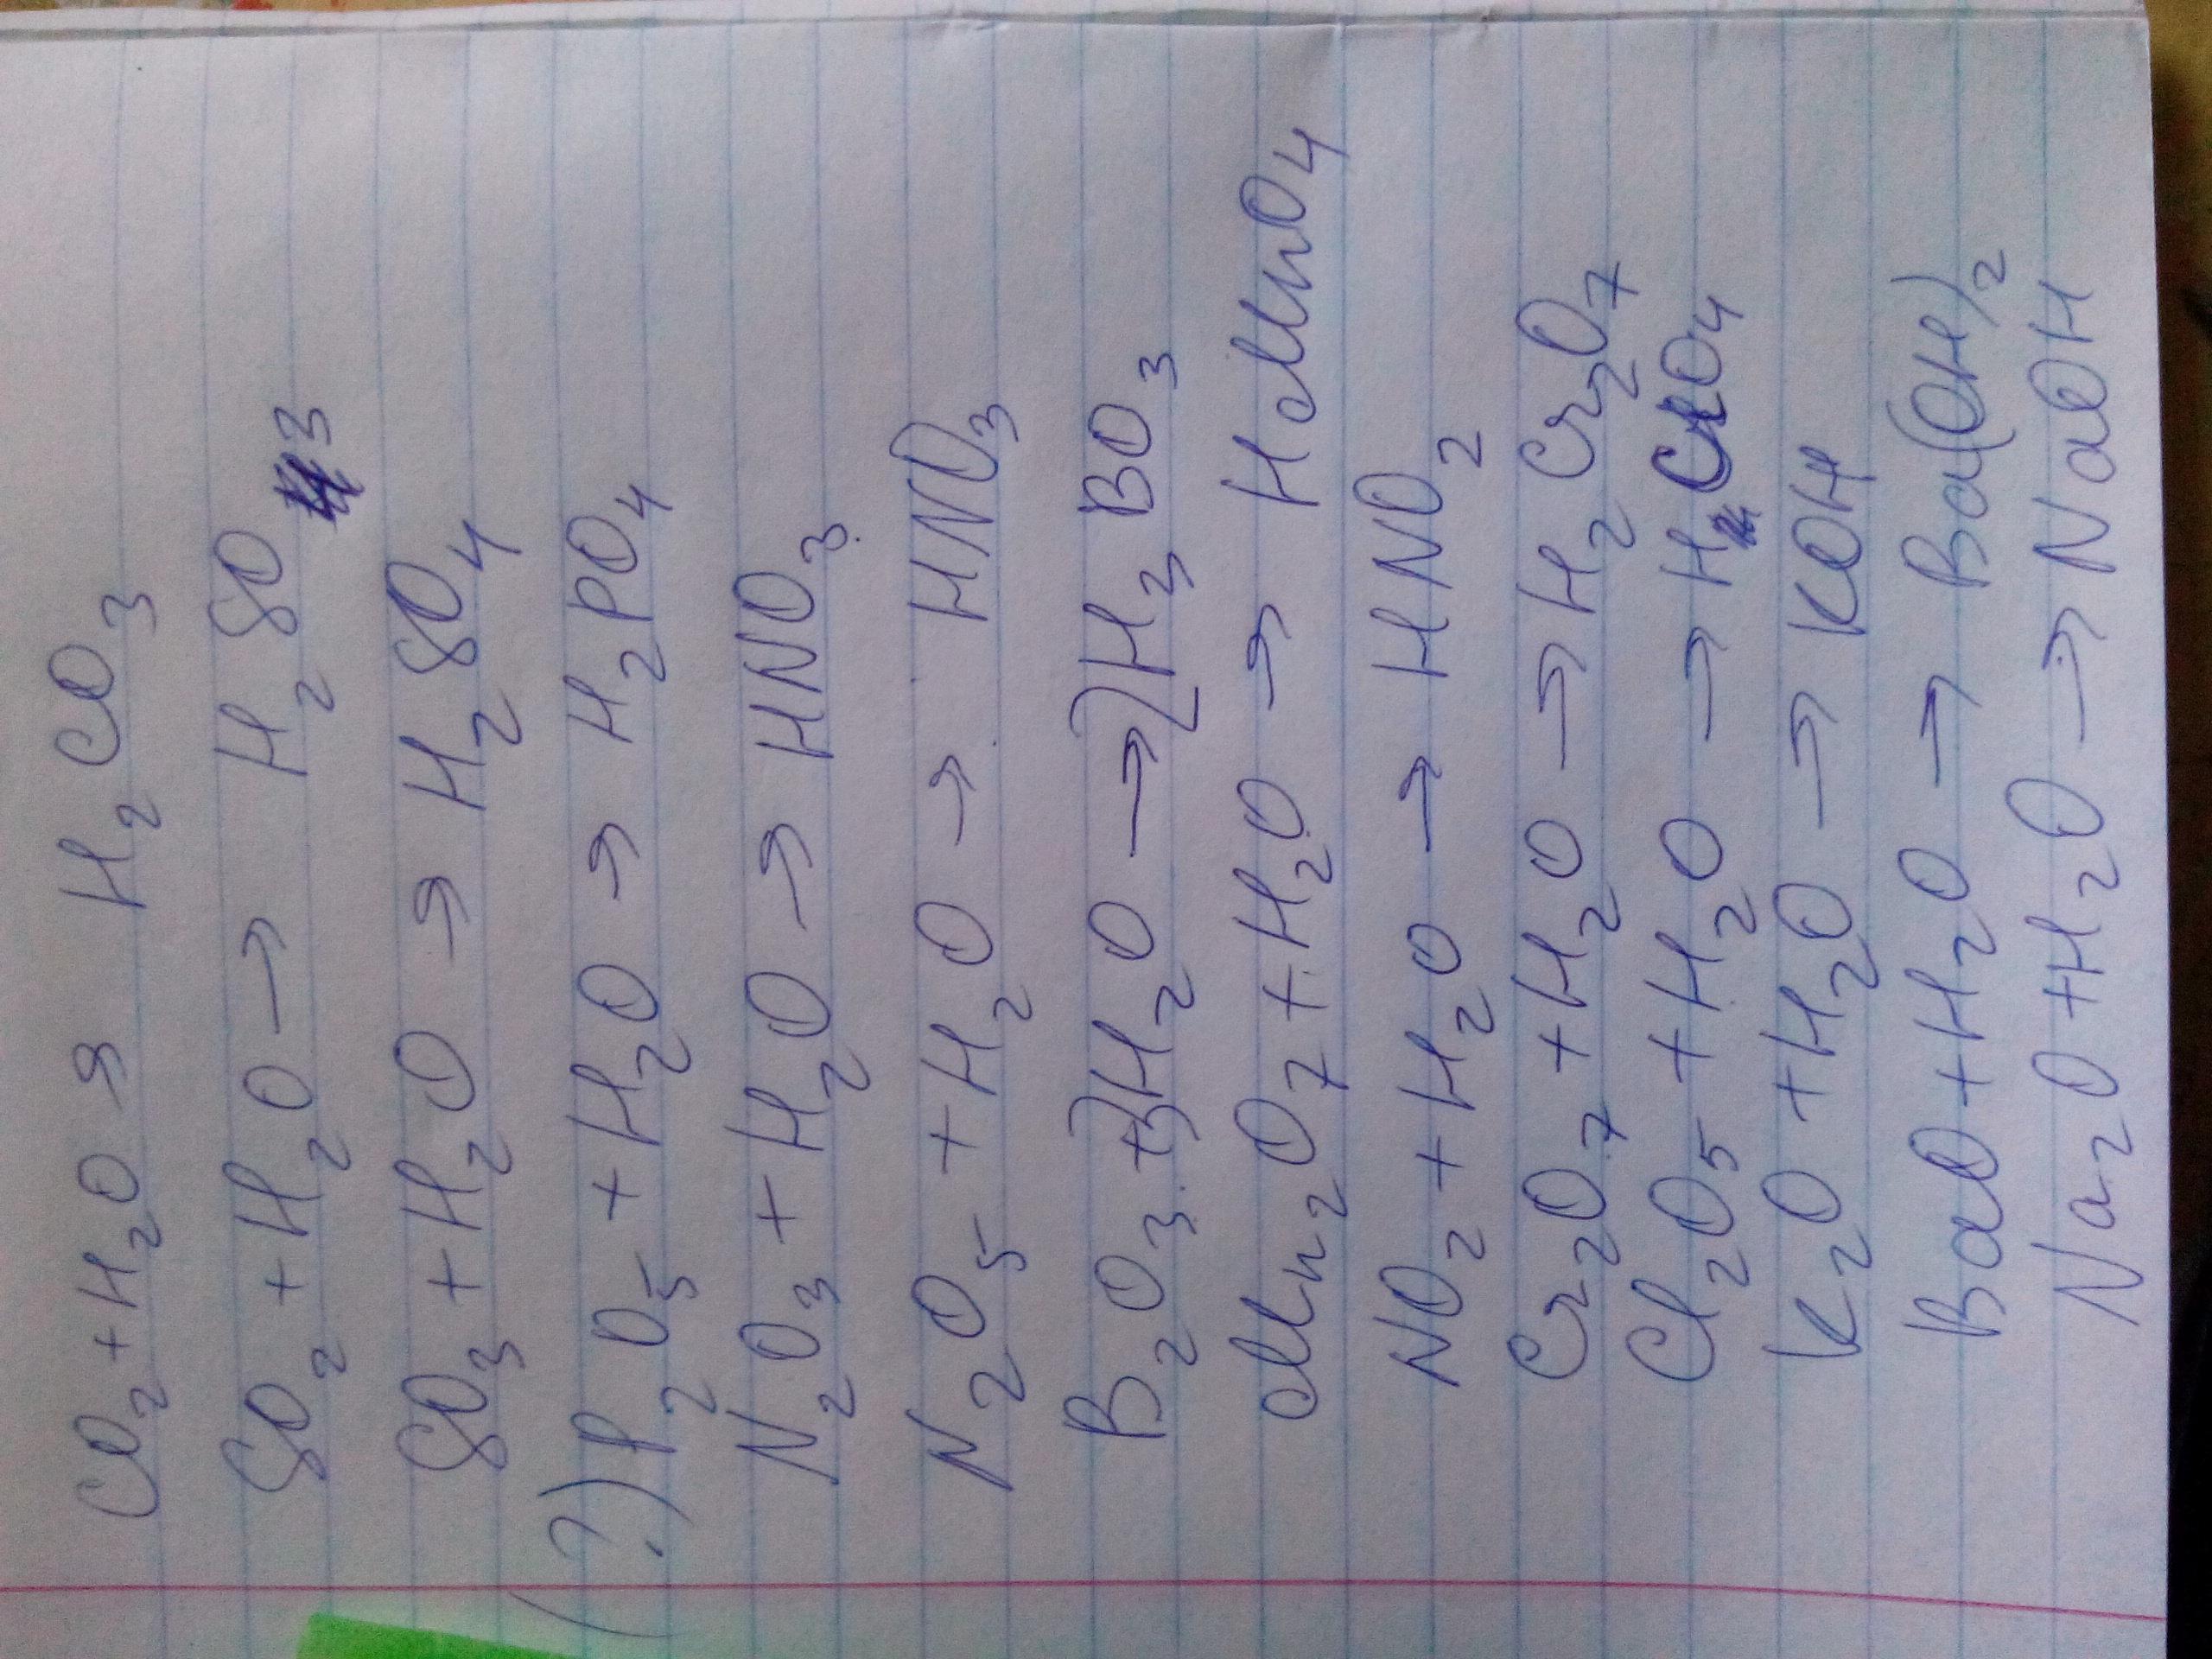 CO2+H2O → H2CO3
SO2+H2O → H2SO3
SO3+H2O → H2SO4
(?) P2O5+H2O → H2PO4
N2O3+H2O → HNO3
N2O5+H2O → HNO3
B2O3+3H2O → 2H3BO3
Mn2O7+H2O → HMnO4
NO2+H2O → HNO2
Cr2O7+H2O → H2Cr2O7
Cl2O5+H2O → HClO4
K2O+H2O → KOH
BaO+H2O → Ba(OH)2
Na2O+H2O → NaOH